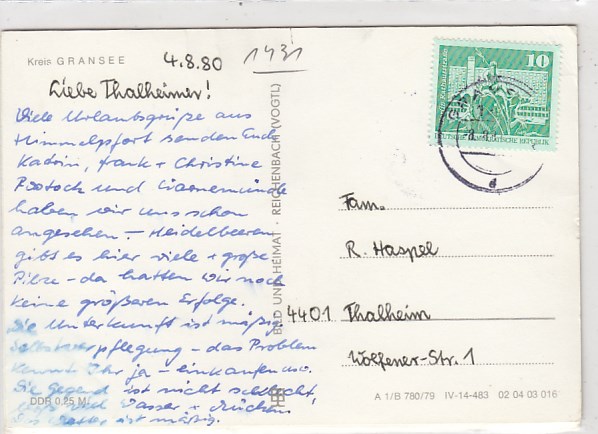 Kreis GRANSEE
4.8.80
1431
Liebe Thalheimer!
Viele Urlaubsgrüße aus
Himmelpfort senden Euch
Katrin, Frank + Christine
Rostock und Warnemünde
haben wir uns schon
angesehen. – Heidelbeeren
gibt es hier viele + große
Pilze – da hatten wir noch
keine größeren Erfolge.
Die Unterkunft ist mäßig.
Selbstverpflegung – das Problem
kennt Ihr ja – einkaufen usw.
Die Gegend ist nicht schlecht,
viel Wasser + Mücken
Das Wetter ist mäßig.
DDR 0.25 M
BILD UND HEIMAT · REICHENBACH (VOGTL)
10
DEUTSCHE DEMOKRATISCHE REPUBLIK
Fam.
R. Haspel
4401 Thalheim
Wolfener-Str. 1
A 1/B 780/79 IV-14-483 02 04 03 016